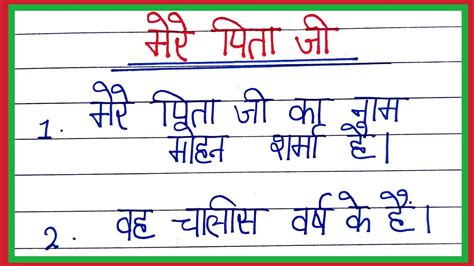 मेरे पिता जी
1. मेरे पिता जी का नाम
मोहन शर्मा है।
2. वह चालीस वर्ष के हैं।